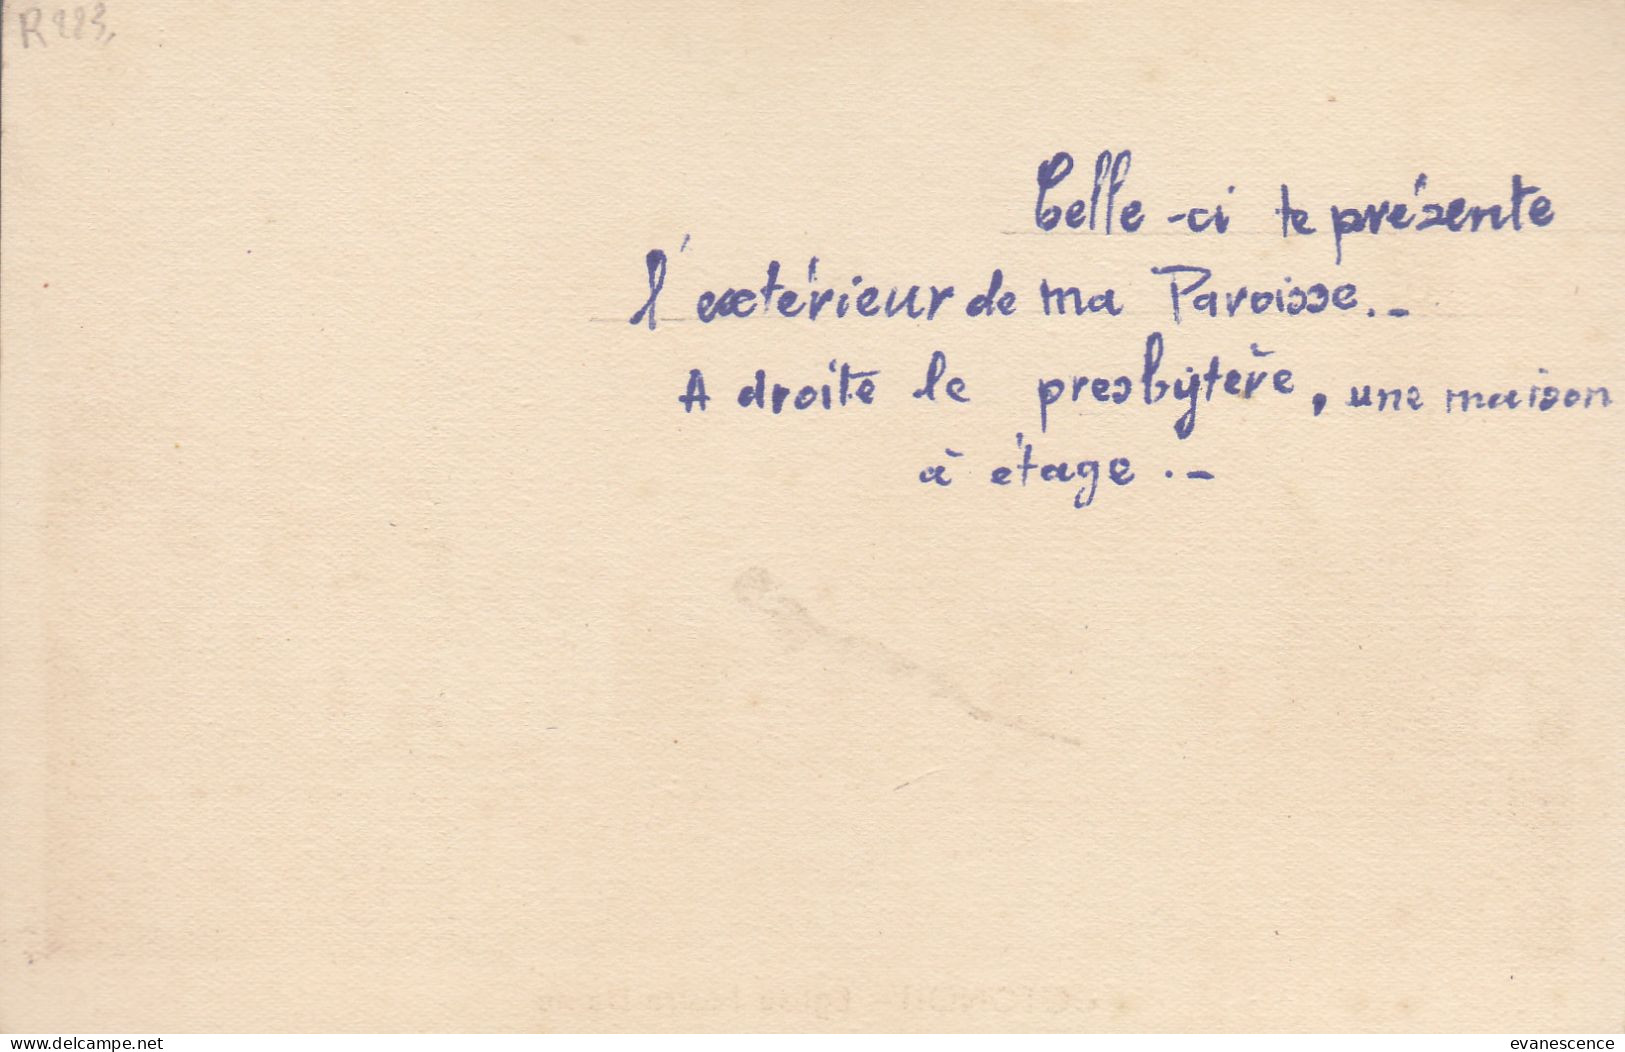 R 223,
Celle-ci te présente
l'extérieur de ma Paroisse.-
A droite le presbytère, une maison
à étage.-
delcampe.net
evanescence